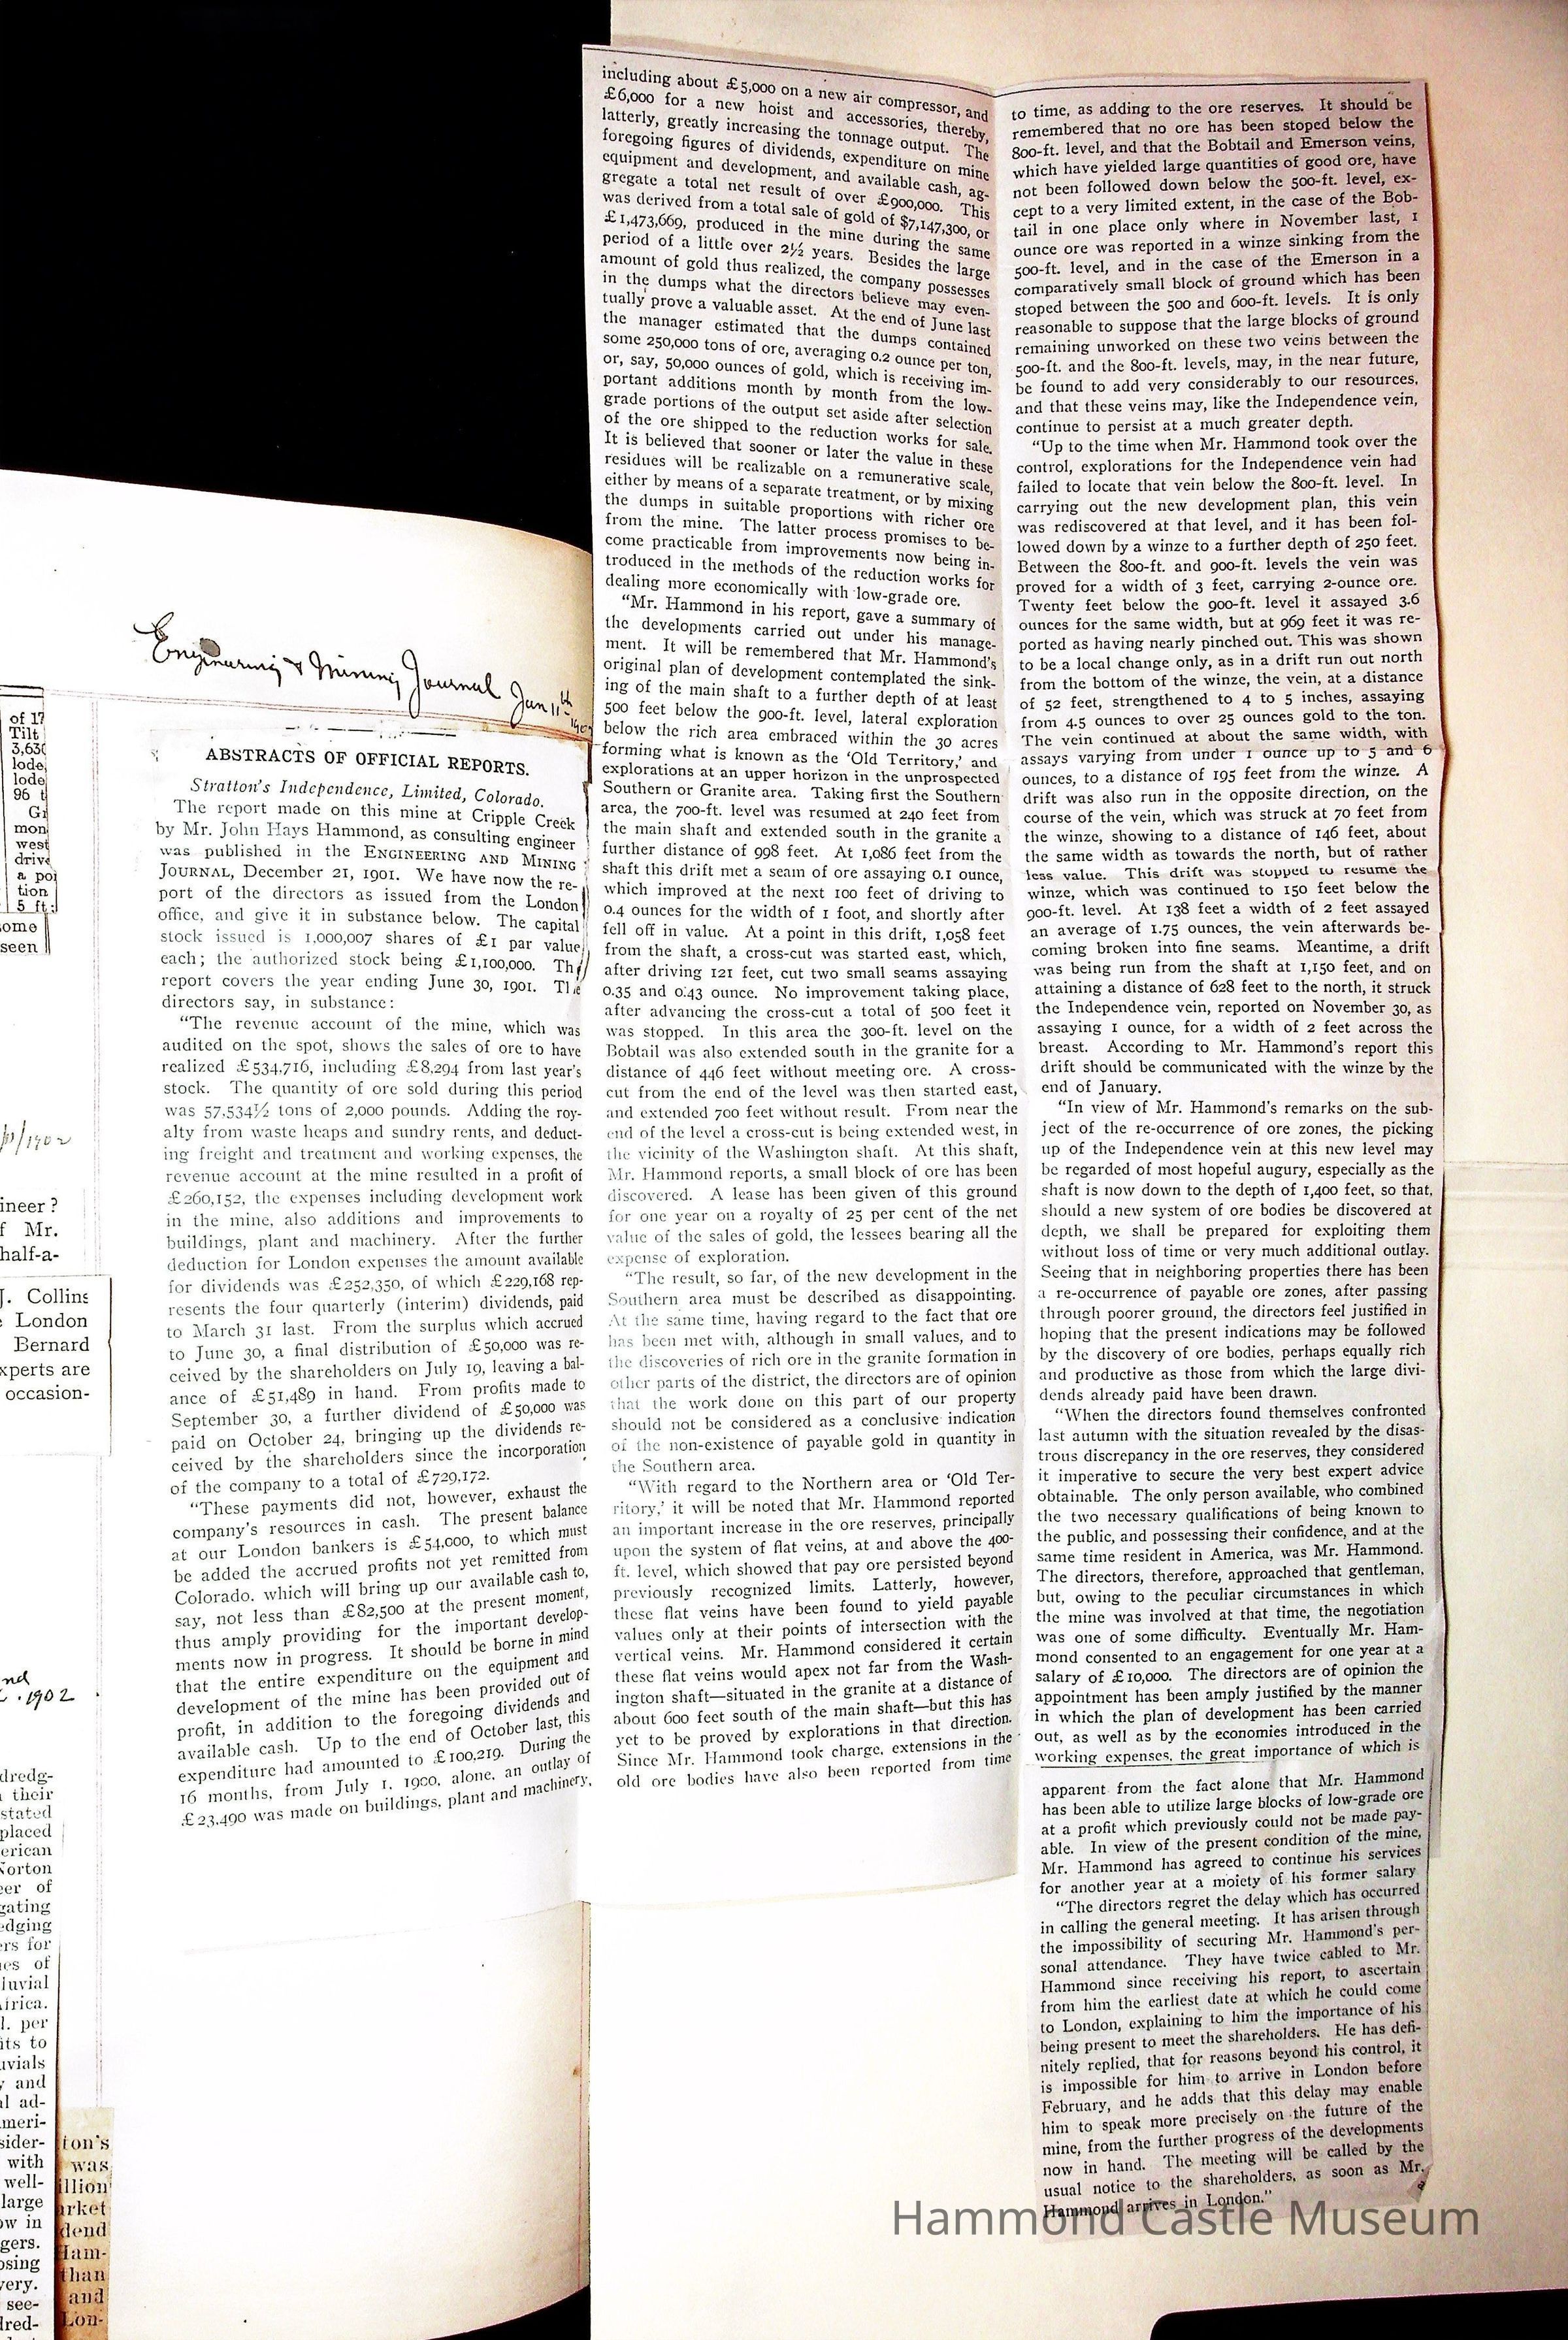 of 17
Tilt
3,630
lode
lode
96 t
mon
west
drive
a poi
tion
5 ft.
ome
seen
/1902
ineer?
f Mr.
half-a-
J. Collins
London
Bernard
xperts are
occasion-
nd
1902
dredg-
their
stated
placed
erican
Norton
eer of
gating
edging
ers for
es of
luvial
frica.
l. per
its to
uvials
and
al ad-
meri-
sider-
with
well-
large
ow in
gers.
osing
very.
see-
dred-
ton's
was
illion
arket
dend
Ham-
than
and
Lon-
Engineering & Mining Journal Jan 11th
ABSTRACTS OF OFFICIAL REPORTS.
Stratton's Independence, Limited, Colorado.
The report made on this mine at Cripple Creek
by Mr. John Hays Hammond, as consulting engineer
was published in the ENGINEERING AND MINING
JOURNAL, December 21, 1901. We have now the re-
port of the directors as issued from the London
office, and give it in substance below. The capital
stock issued is 1,000,007 shares of £1 par value
each; the authorized stock being £1,100,000. The
report covers the year ending June 30, 1901. The
directors say, in substance:
"The revenue account of the mine, which was
audited on the spot, shows the sales of ore to have
realized £534,716, including £8,294 from last year's
stock. The quantity of ore sold during this period
was 57,534½ tons of 2,000 pounds. Adding the roy-
alty from waste heaps and sundry rents, and deduct-
ing freight and treatment and working expenses, the
revenue account at the mine resulted in a profit of
£260,152, the expenses including development work
in the mine, also additions and improvements to
buildings, plant and machinery. After the further
deduction for London expenses the amount available
for dividends was £252,350, of which £229,168 rep-
resents the four quarterly (interim) dividends, paid
to March 31 last. From the surplus which accrued
to June 30, a final distribution of £50,000 was re-
ceived by the shareholders on July 19, leaving a bal-
ance of £51,489 in hand. From profits made to
September 30, a further dividend of £50,000 was
paid on October 24, bringing up the dividends re-
ceived by the shareholders since the incorporation
of the company to a total of £729,172.
"These payments did not, however, exhaust the
company's resources in cash. The present balance
at our London bankers is £54,000, to which must
be added the accrued profits not yet remitted from
Colorado, which will bring up our available cash to,
say, not less than £82,500 at the present moment,
thus amply providing for the important develop-
ments now in progress. It should be borne in mind
that the entire expenditure on the equipment and
development of the mine has been provided out of
profit, in addition to the foregoing dividends and
available cash. Up to the end of October last, this
expenditure had amounted to £100,219. During the
16 months, from July 1, 1900, alone, an outlay of
£23,490 was made on buildings, plant and machinery,
including about £5,000 on a new air compressor, and
£6,000 for a new hoist and accessories, thereby,
latterly, greatly increasing the tonnage output. The
foregoing figures of dividends, expenditure on mine
equipment and development, and available cash, ag-
gregate a total net result of over £900,000. This
was derived from a total sale of gold of $7,147,300, or
£1,473,669, produced in the mine during the same
period of a little over 2½ years. Besides the large
amount of gold thus realized, the company possesses
in the dumps what the directors believe may even-
tually prove a valuable asset. At the end of June last
the manager estimated that the dumps contained
some 250,000 tons of ore, averaging 0.2 ounce per ton,
or, say, 50,000 ounces of gold, which is receiving im-
portant additions month by month from the low-
grade portions of the output set aside after selection
of the ore shipped to the reduction works for sale.
It is believed that sooner or later the value in these
residues will be realizable on a remunerative scale,
either by means of a separate treatment, or by mixing
the dumps in suitable proportions with richer ore
from the mine. The latter process promises to be-
come practicable from improvements now being in-
troduced in the methods of the reduction works for
dealing more economically with low-grade ore.
"Mr. Hammond in his report, gave a summary of
the developments carried out under his manage-
ment. It will be remembered that Mr. Hammond's
original plan of development contemplated the sink-
ing of the main shaft to a further depth of at least
500 feet below the 900-ft. level, lateral exploration
below the rich area embraced within the 30 acres
forming what is known as the 'Old Territory,' and
explorations at an upper horizon in the unprospected
Southern or Granite area. Taking first the Southern
area, the 700-ft. level was resumed at 240 feet from
the main shaft and extended south in the granite a
further distance of 998 feet. At 1,086 feet from the
shaft this drift met a seam of ore assaying 0.1 ounce,
which improved at the next 100 feet of driving to
0.4 ounces for the width of 1 foot, and shortly after
fell off in value. At a point in this drift, 1,058 feet
from the shaft, a cross-cut was started east, which,
after driving 121 feet, cut two small seams assaying
0.35 and 0.43 ounce. No improvement taking place,
after advancing the cross-cut a total of 500 feet it
was stopped. In this area the 300-ft. level on the
Bobtail was also extended south in the granite for a
distance of 446 feet without meeting ore. A cross-
cut from the end of the level was then started east,
and extended 700 feet without result. From near the
end of the level a cross-cut is being extended west, in
the vicinity of the Washington shaft. At this shaft,
Mr. Hammond reports, a small block of ore has been
discovered. A lease has been given of this ground
for one year on a royalty of 25 per cent of the net
value of the sales of gold, the lessees bearing all the
expense of exploration.
"The result, so far, of the new development in the
Southern area must be described as disappointing.
At the same time, having regard to the fact that ore
has been met with, although in small values, and to
the discoveries of rich ore in the granite formation in
other parts of the district, the directors are of opinion
that the work done on this part of our property
should not be considered as a conclusive indication
of the non-existence of payable gold in quantity in
the Southern area.
"With regard to the Northern area or 'Old Ter-
ritory,' it will be noted that Mr. Hammond reported
an important increase in the ore reserves, principally
upon the system of flat veins, at and above the 400-
ft. level, which showed that pay ore persisted beyond
previously recognized limits. Latterly, however,
these flat veins have been found to yield payable
values only at their points of intersection with the
vertical veins. Mr. Hammond considered it certain
these flat veins would apex not far from the Wash-
ington shaft—situated in the granite at a distance of
about 600 feet south of the main shaft—but this has
yet to be proved by explorations in that direction.
Since Mr. Hammond took charge, extensions in the
old ore bodies have also been reported from time
to time, as adding to the ore reserves. It should be
remembered that no ore has been stoped below the
800-ft. level, and that the Bobtail and Emerson veins,
which have yielded large quantities of good ore, have
not been followed down below the 500-ft. level, ex-
cept to a very limited extent, in the case of the Bob-
tail in one place only where in November last, 1
ounce ore was reported in a winze sinking from the
500-ft. level, and in the case of the Emerson in a
comparatively small block of ground which has been
stoped between the 500 and 600-ft. levels. It is only
reasonable to suppose that the large blocks of ground
remaining unworked on these two veins between the
500-ft. and the 800-ft. levels, may, in the near future,
be found to add very considerably to our resources,
and that these veins may, like the Independence vein,
continue to persist at a much greater depth.
"Up to the time when Mr. Hammond took over the
control, explorations for the Independence vein had
failed to locate that vein below the 800-ft. level. In
carrying out the new development plan, this vein
was rediscovered at that level, and it has been fol-
lowed down by a winze to a further depth of 250 feet.
Between the 800-ft. and 900-ft. levels the vein was
proved for a width of 3 feet, carrying 2-ounce ore.
Twenty feet below the 900-ft. level it assayed 3.6
ounces for the same width, but at 969 feet it was re-
ported as having nearly pinched out. This was shown
to be a local change only, as in a drift run out north
from the bottom of the winze, the vein, at a distance
of 52 feet, strengthened to 4 to 5 inches, assaying
from 4.5 ounces to over 25 ounces gold to the ton.
The vein continued at about the same width, with
assays varying from under 1 ounce up to 5 and 6
ounces, to a distance of 195 feet from the winze. A
drift was also run in the opposite direction, on the
course of the vein, which was struck at 70 feet from
the winze, showing to a distance of 146 feet, about
the same width as towards the north, but of rather
less value. This drift was stopped to resume the
winze, which was continued to 150 feet below the
900-ft. level. At 138 feet a width of 2 feet assayed
an average of 1.75 ounces, the vein afterwards be-
coming broken into fine seams. Meantime, a drift
was being run from the shaft at 1,150 feet, and on
attaining a distance of 628 feet to the north, it struck
the Independence vein, reported on November 30, as
assaying 1 ounce, for a width of 2 feet across the
breast. According to Mr. Hammond's report this
drift should be communicated with the winze by the
end of January.
"In view of Mr. Hammond's remarks on the sub-
ject of the re-occurrence of ore zones, the picking
up of the Independence vein at this new level may
be regarded of most hopeful augury, especially as the
shaft is now down to the depth of 1,400 feet, so that,
should a new system of ore bodies be discovered at
depth, we shall be prepared for exploiting them
without loss of time or very much additional outlay.
Seeing that in neighboring properties there has been
a re-occurrence of payable ore zones, after passing
through poorer ground, the directors feel justified in
hoping that the present indications may be followed
by the discovery of ore bodies, perhaps equally rich
and productive as those from which the large divi-
dends already paid have been drawn.
"When the directors found themselves confronted
last autumn with the situation revealed by the disas-
trous discrepancy in the ore reserves, they considered
it imperative to secure the very best expert advice
obtainable. The only person available, who combined
the two necessary qualifications of being known to
the public, and possessing their confidence, and at the
same time resident in America, was Mr. Hammond.
The directors, therefore, approached that gentleman,
but, owing to the peculiar circumstances in which
the mine was involved at that time, the negotiation
was one of some difficulty. Eventually Mr. Ham-
mond consented to an engagement for one year at a
salary of £10,000. The directors are of opinion the
appointment has been amply justified by the manner
in which the plan of development has been carried
out, as well as by the economies introduced in the
working expenses, the great importance of which is
apparent from the fact alone that Mr. Hammond
has been able to utilize large blocks of low-grade ore
at a profit which previously could not be made pay-
able. In view of the present condition of the mine,
Mr. Hammond has agreed to continue his services
for another year at a moiety of his former salary
"The directors regret the delay which has occurred
in calling the general meeting. It has arisen through
the impossibility of securing Mr. Hammond's per-
sonal attendance. They have twice cabled to Mr.
Hammond since receiving his report, to ascertain
from him the earliest date at which he could come
to London, explaining to him the importance of his
being present to meet the shareholders. He has defi-
nitely replied, that for reasons beyond his control, it
is impossible for him to arrive in London before
February, and he adds that this delay may enable
him to speak more precisely on the future of the
mine, from the further progress of the developments
now in hand. The meeting will be called by the
usual notice to the shareholders, as soon as Mr.
Hammond arrives in London."
Hammond Castle Museum